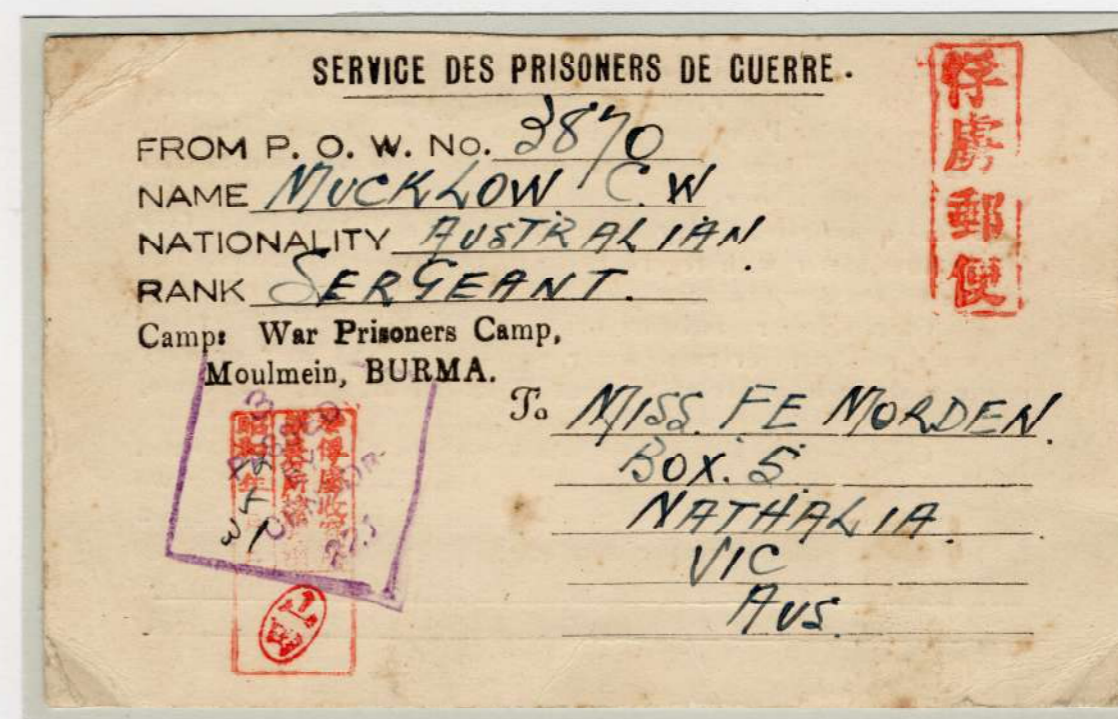 SERVICE DES PRISONERS DE GUERRE.
俘虜郵便
FROM P. O. W. No. 3870
NAME MUCKLOW C.W
NATIONALITY AUSTRALIAN.
RANK SERGEANT.
Camp: War Prisoners Camp,
Moulmein, BURMA.
To MISS. FE MORDEN.
BOX. 5.
NATHALIA.
VIC
AUS.
3
PASSED
BY